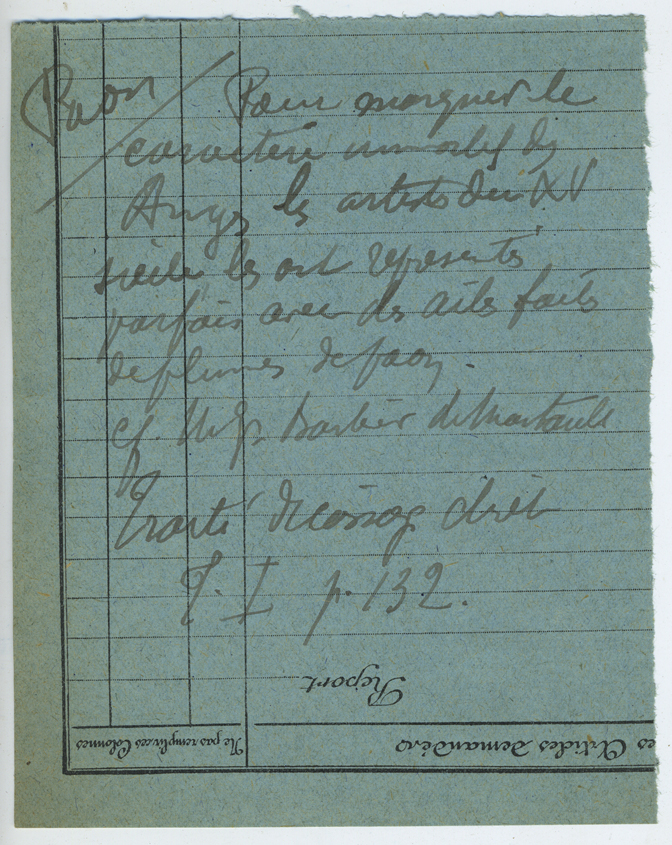 Paon / Pour marquer le
caractère immortel des
Anges les artistes du XV
siècle les ont représentés
parfois avec des ailes faites
de plumes de paon.
cf. Mgr Barbier de Montault
Traité d'iconog chrét
T. I p. 132.
Report
Ne pas remplir ces Colonnes
es Articles Demandés